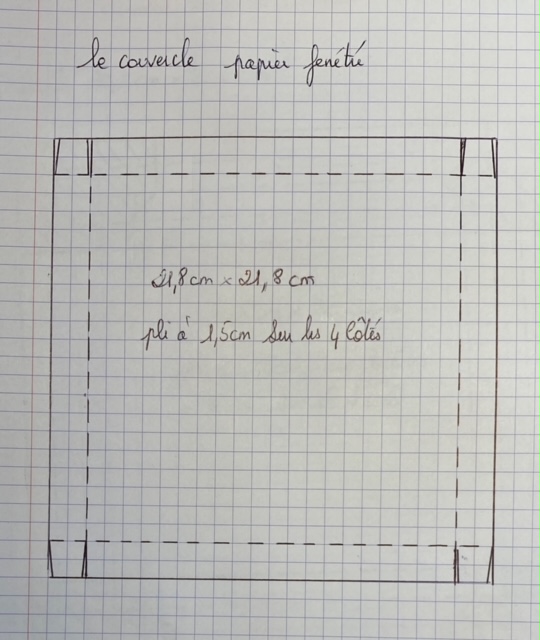 le couvercle papier fenêtré
21,8cm x 21,8 cm
pli à 1,5cm sur les 4 côtés